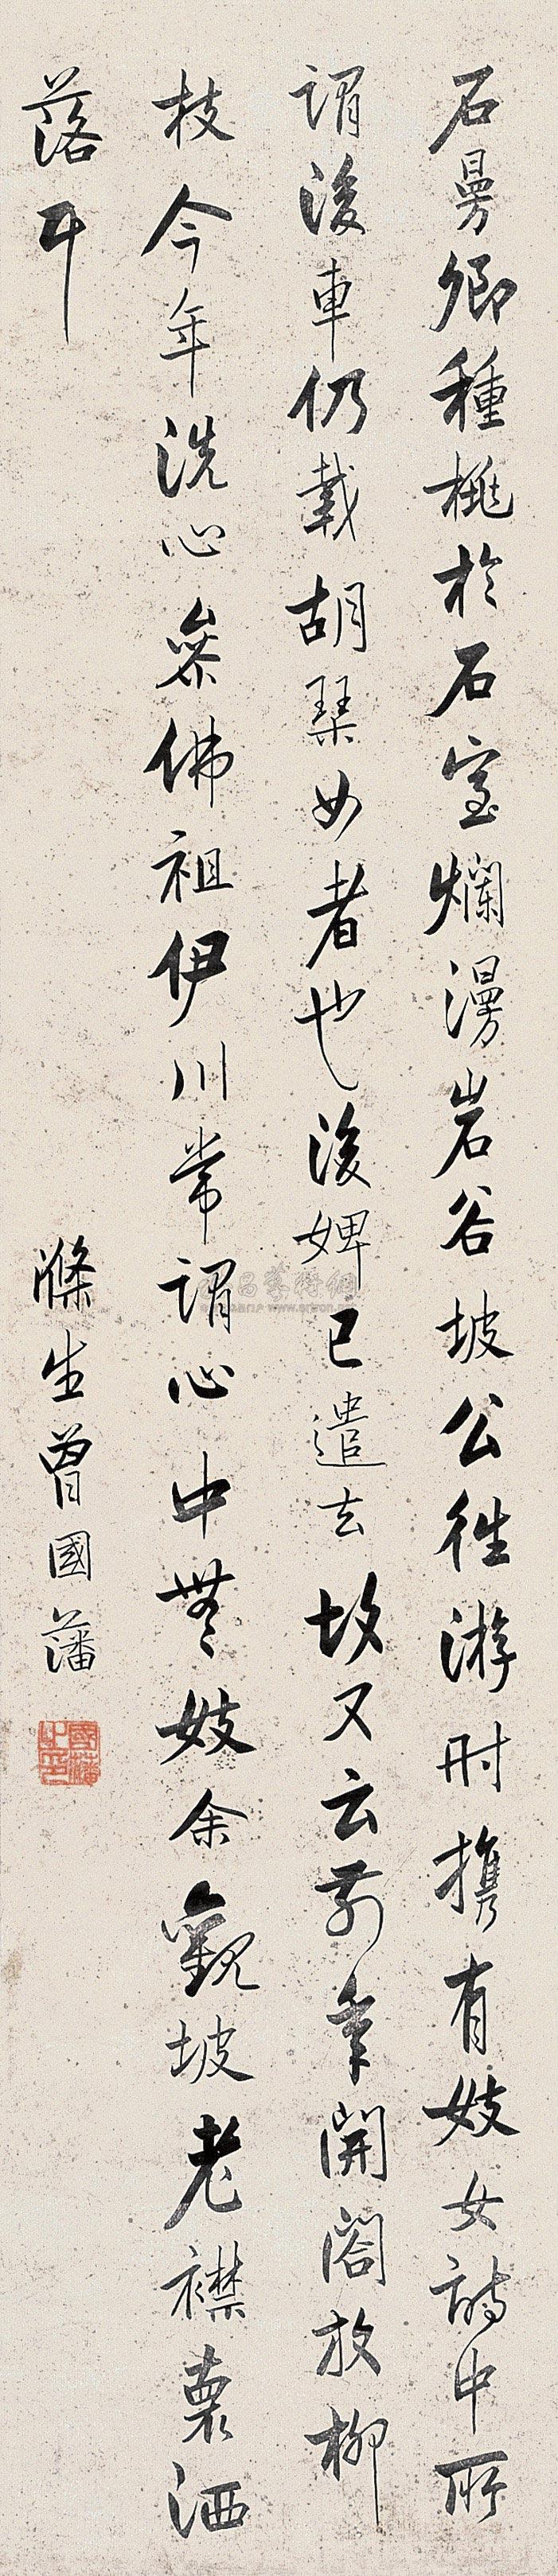 石曼卿種桃於石室爛漫岩谷坡公往游時攜有妓女詩中所
謂後車仍載胡琴女者也後婢已遣去故又云前年開閤放柳
枝今年洗心參佛祖伊川常謂心中無妓余觀坡老襟褱洒
落耳
滌生曾國藩
國藩之印